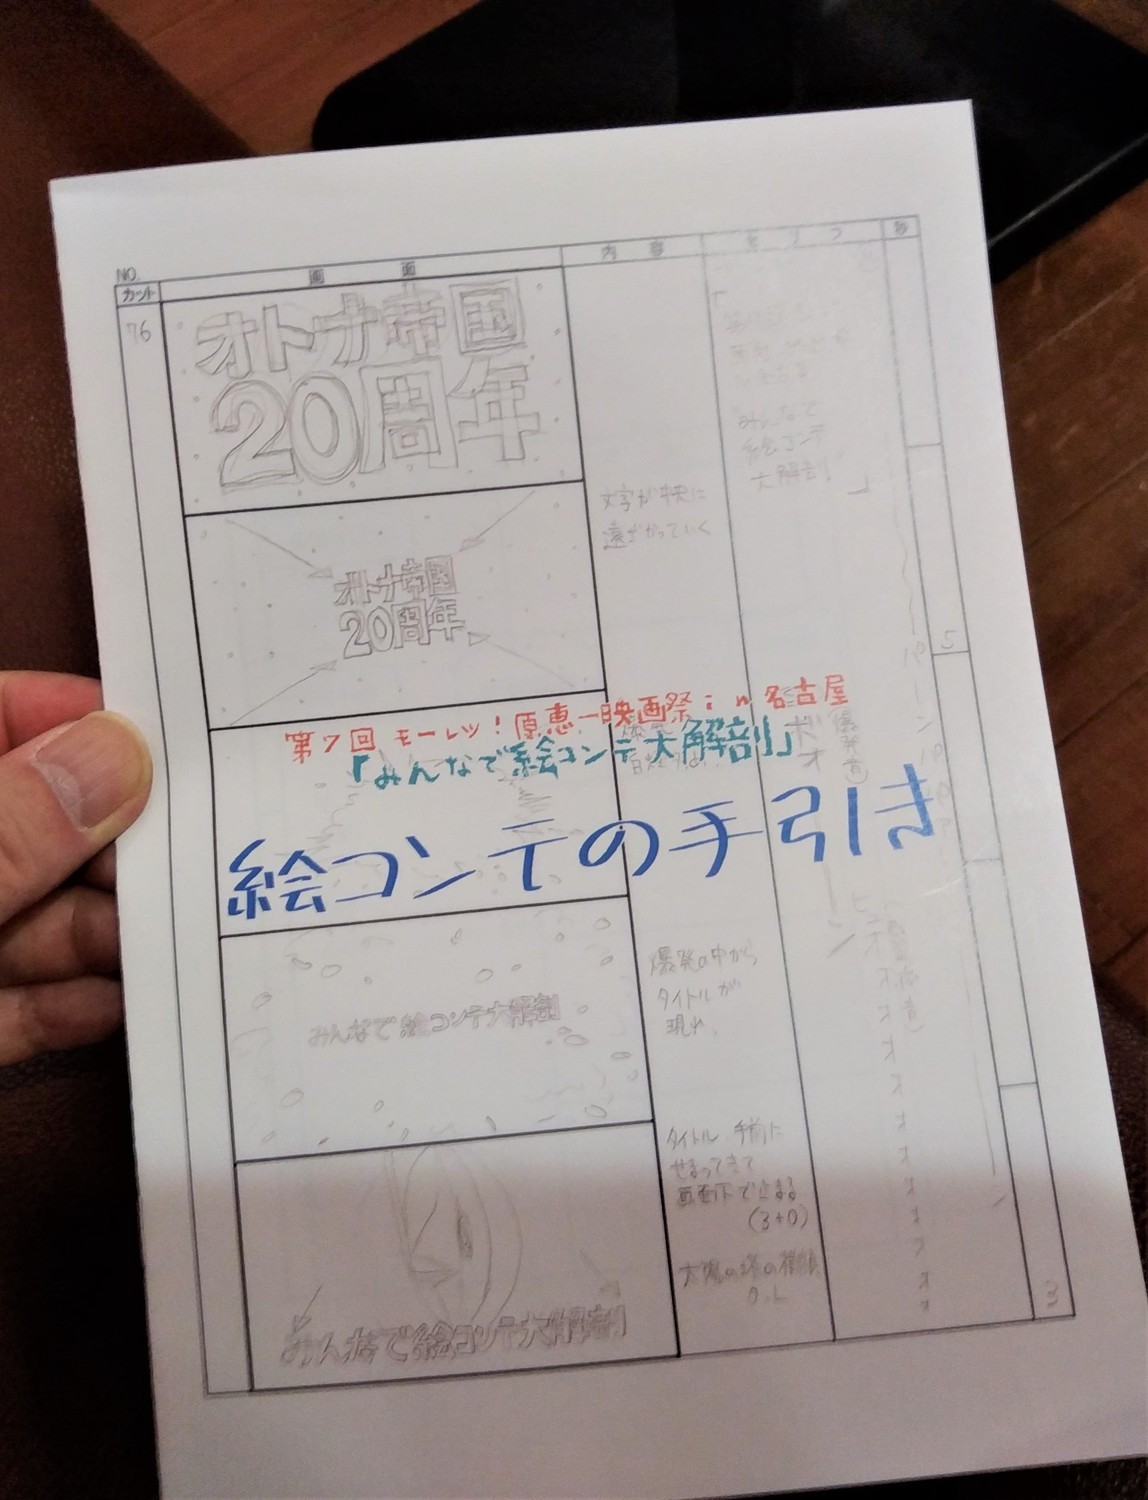 NO.
カット
画 面
内 容
セリフ
秒
76
オトナ帝国
20周年
みんなで
絵コンテ
大解剖」
文字が中央に
遠ざかっていく
オトナ帝国
20周年
5
第7回 モーレツ!原恵一映画祭in名古屋
「みんなで絵コンテ大解剖」
絵コンテの手引き
(爆発音)
爆発の中から
タイトルが
現れ、
みんなで絵コンテ大解剖
タイトル 手前に
せまってきて
画面下で止まる
(3+0)
太陽の塔の横顔
O.L
みんなで絵コンテ大解剖
3